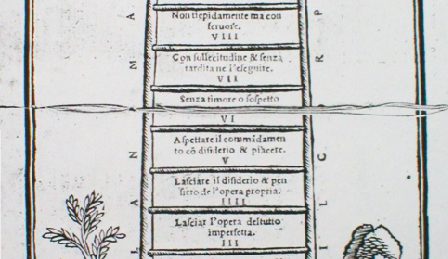 Non tiepidamente ma con
feruore.
VIII
Con sollecitudine & senza
tardità ne l'eseguire.
VII
Senza timore o sospetto
VI
Aspettare il comandamen
to cō disiderio & piacere.
V
Lasciare il disiderio & pen
siero de l'opera propria.
IIII
Lasciar l'opera del tutto
imperfetta.
III
A
M
A
N
A
L
P
R
C
L
I